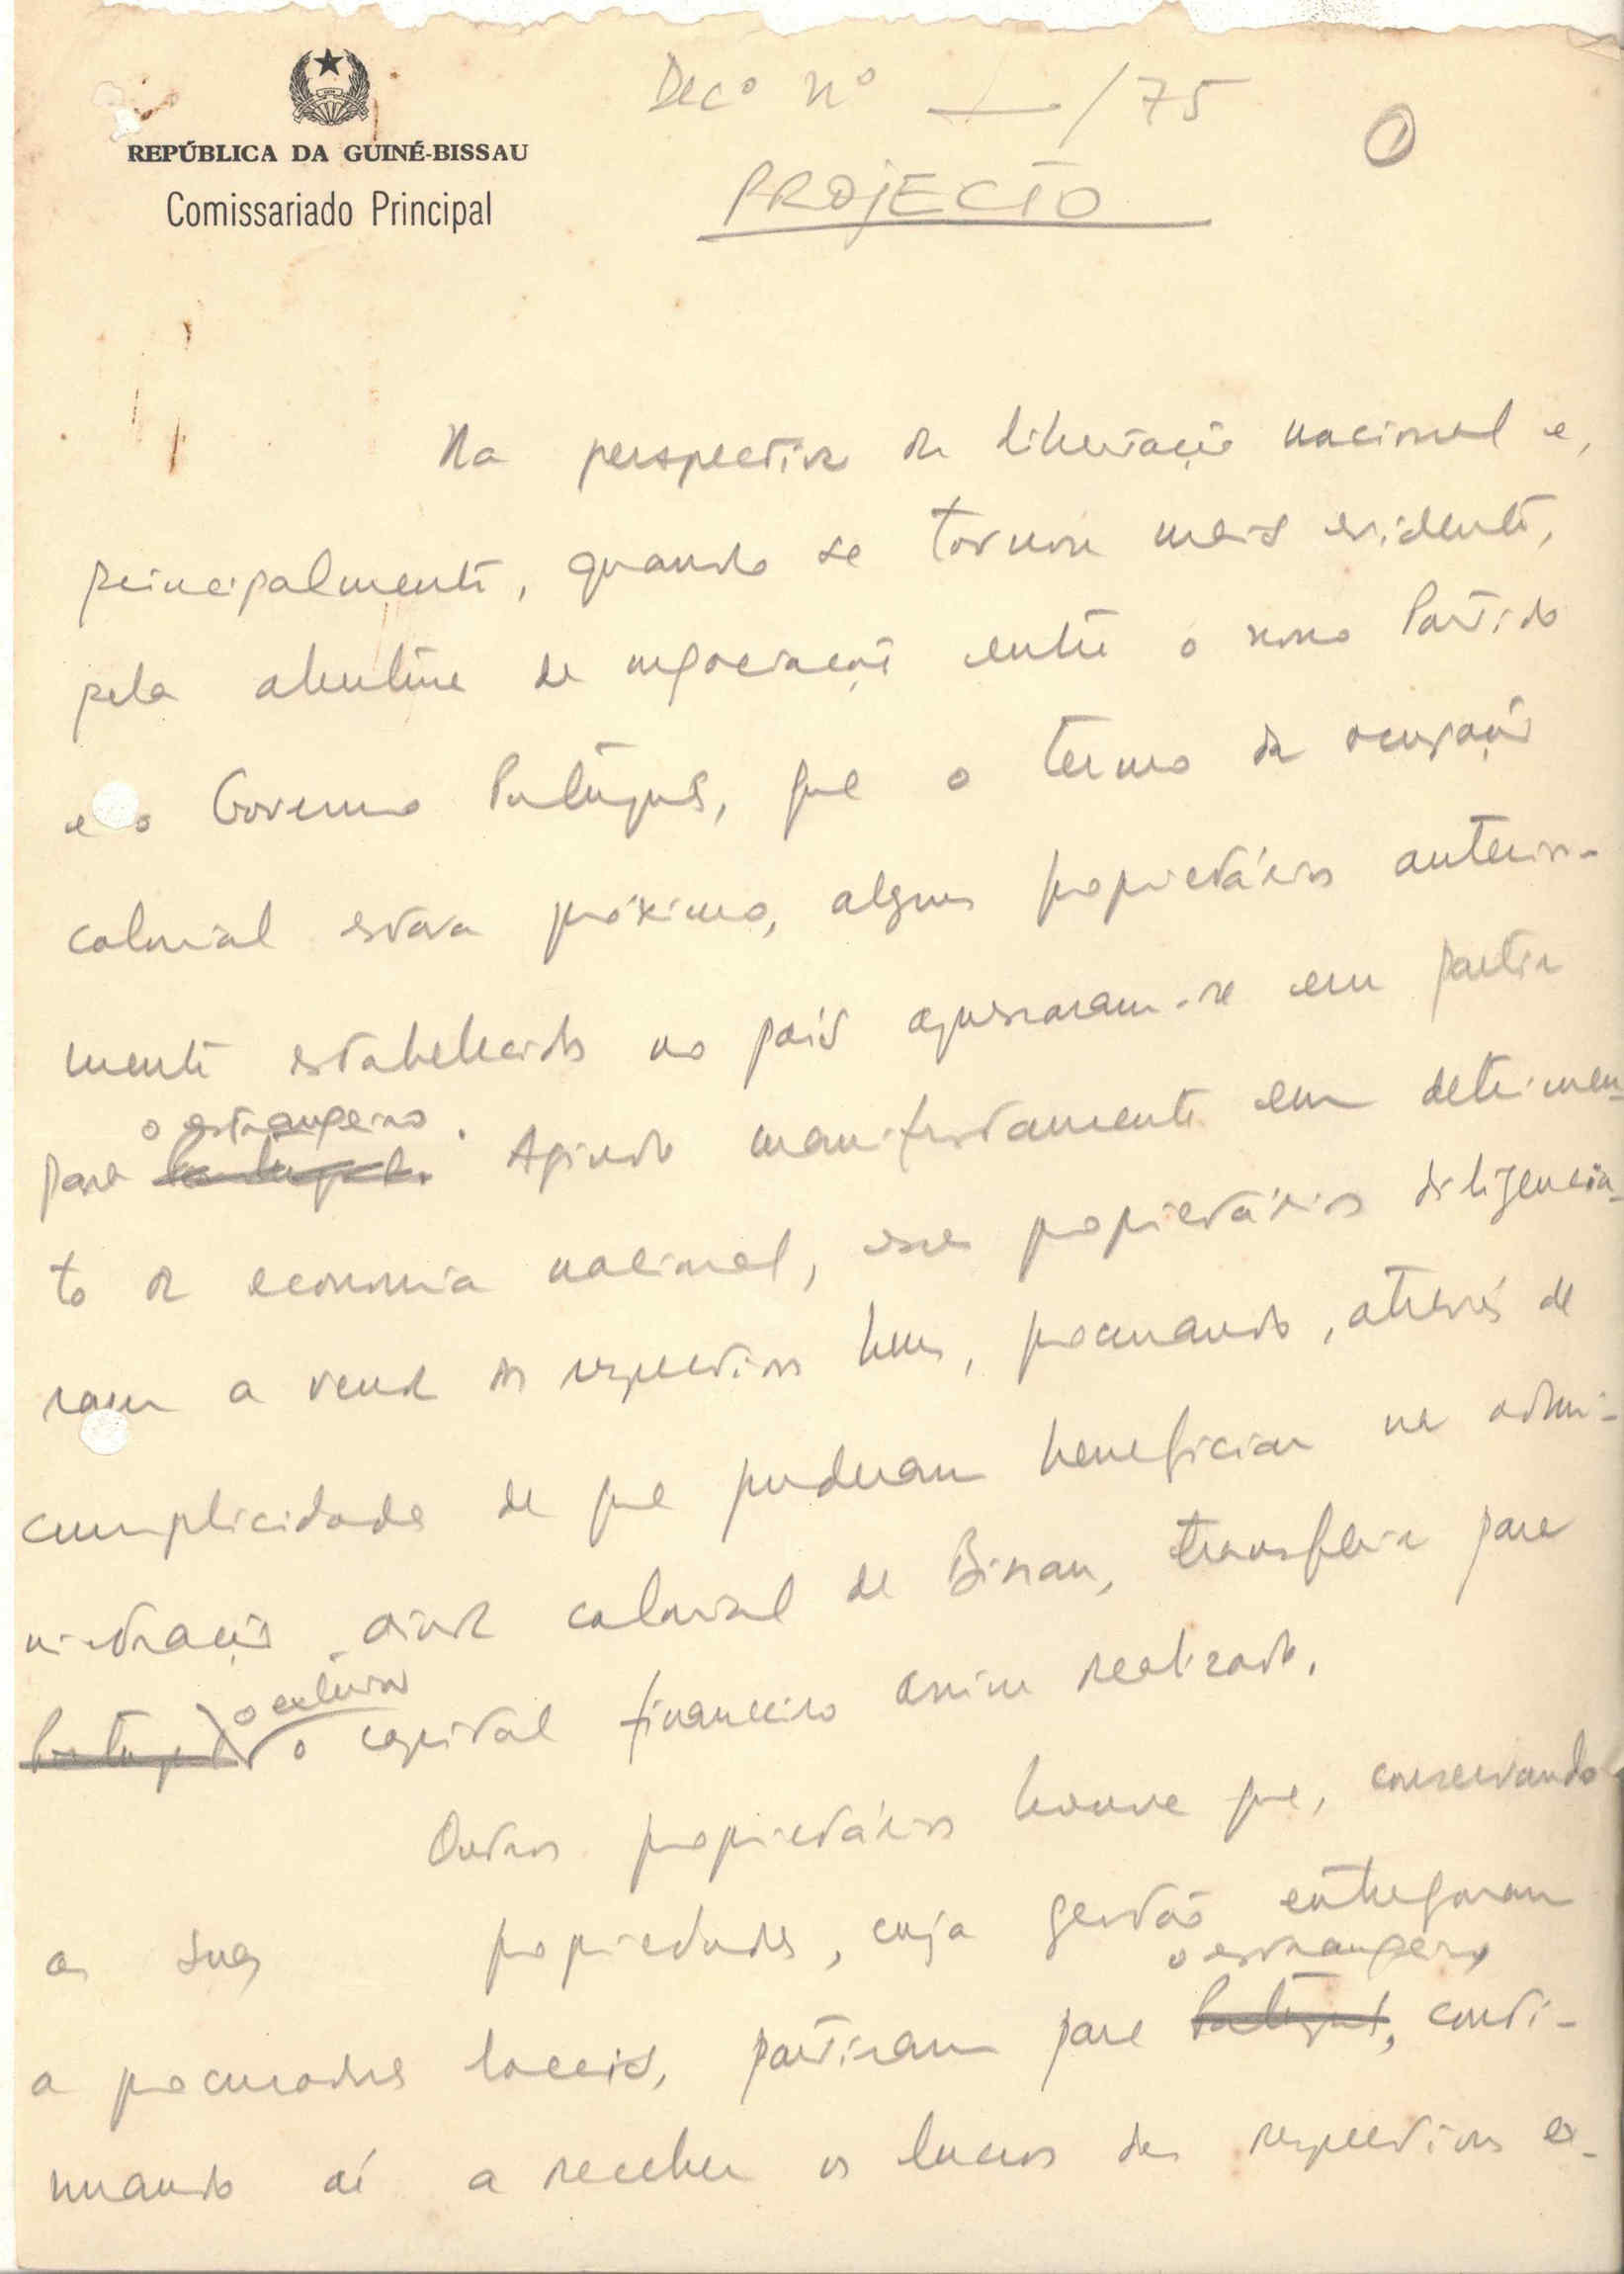 Decº nº ___/75
①
REPÚBLICA DA GUINÉ-BISSAU
PROJECTO
Comissariado Principal
Na perspectiva da libertação nacional e,
principalmente, quando se tornou mais evidente,
pela abertura de negociações entre o nosso Partido
e o Governo Português, que o termo da ocupação
colonial estava próximo, alguns proprietários anterior-
mente estabelecidos no país apressaram-se em partir
o estrangeiro.
para Portugal. Agindo manifestamente em detrimen-
to da economia nacional, esses proprietários diligencia-
ram a venda dos respectivos bens, procurando, através de
cumplicidades de que puderam beneficiar na admi-
nistração ainda colonial de Bissau, transferir para
o exterior
Portugal o capital financeiro assim realizado.
Outros proprietários houve que, conservando
as suas propriedades, cuja gestão entregaram
o estrangeiro
a procuradores locais, partiram para Portugal, conti-
nuando aí a receber os lucros das respectivas ex-